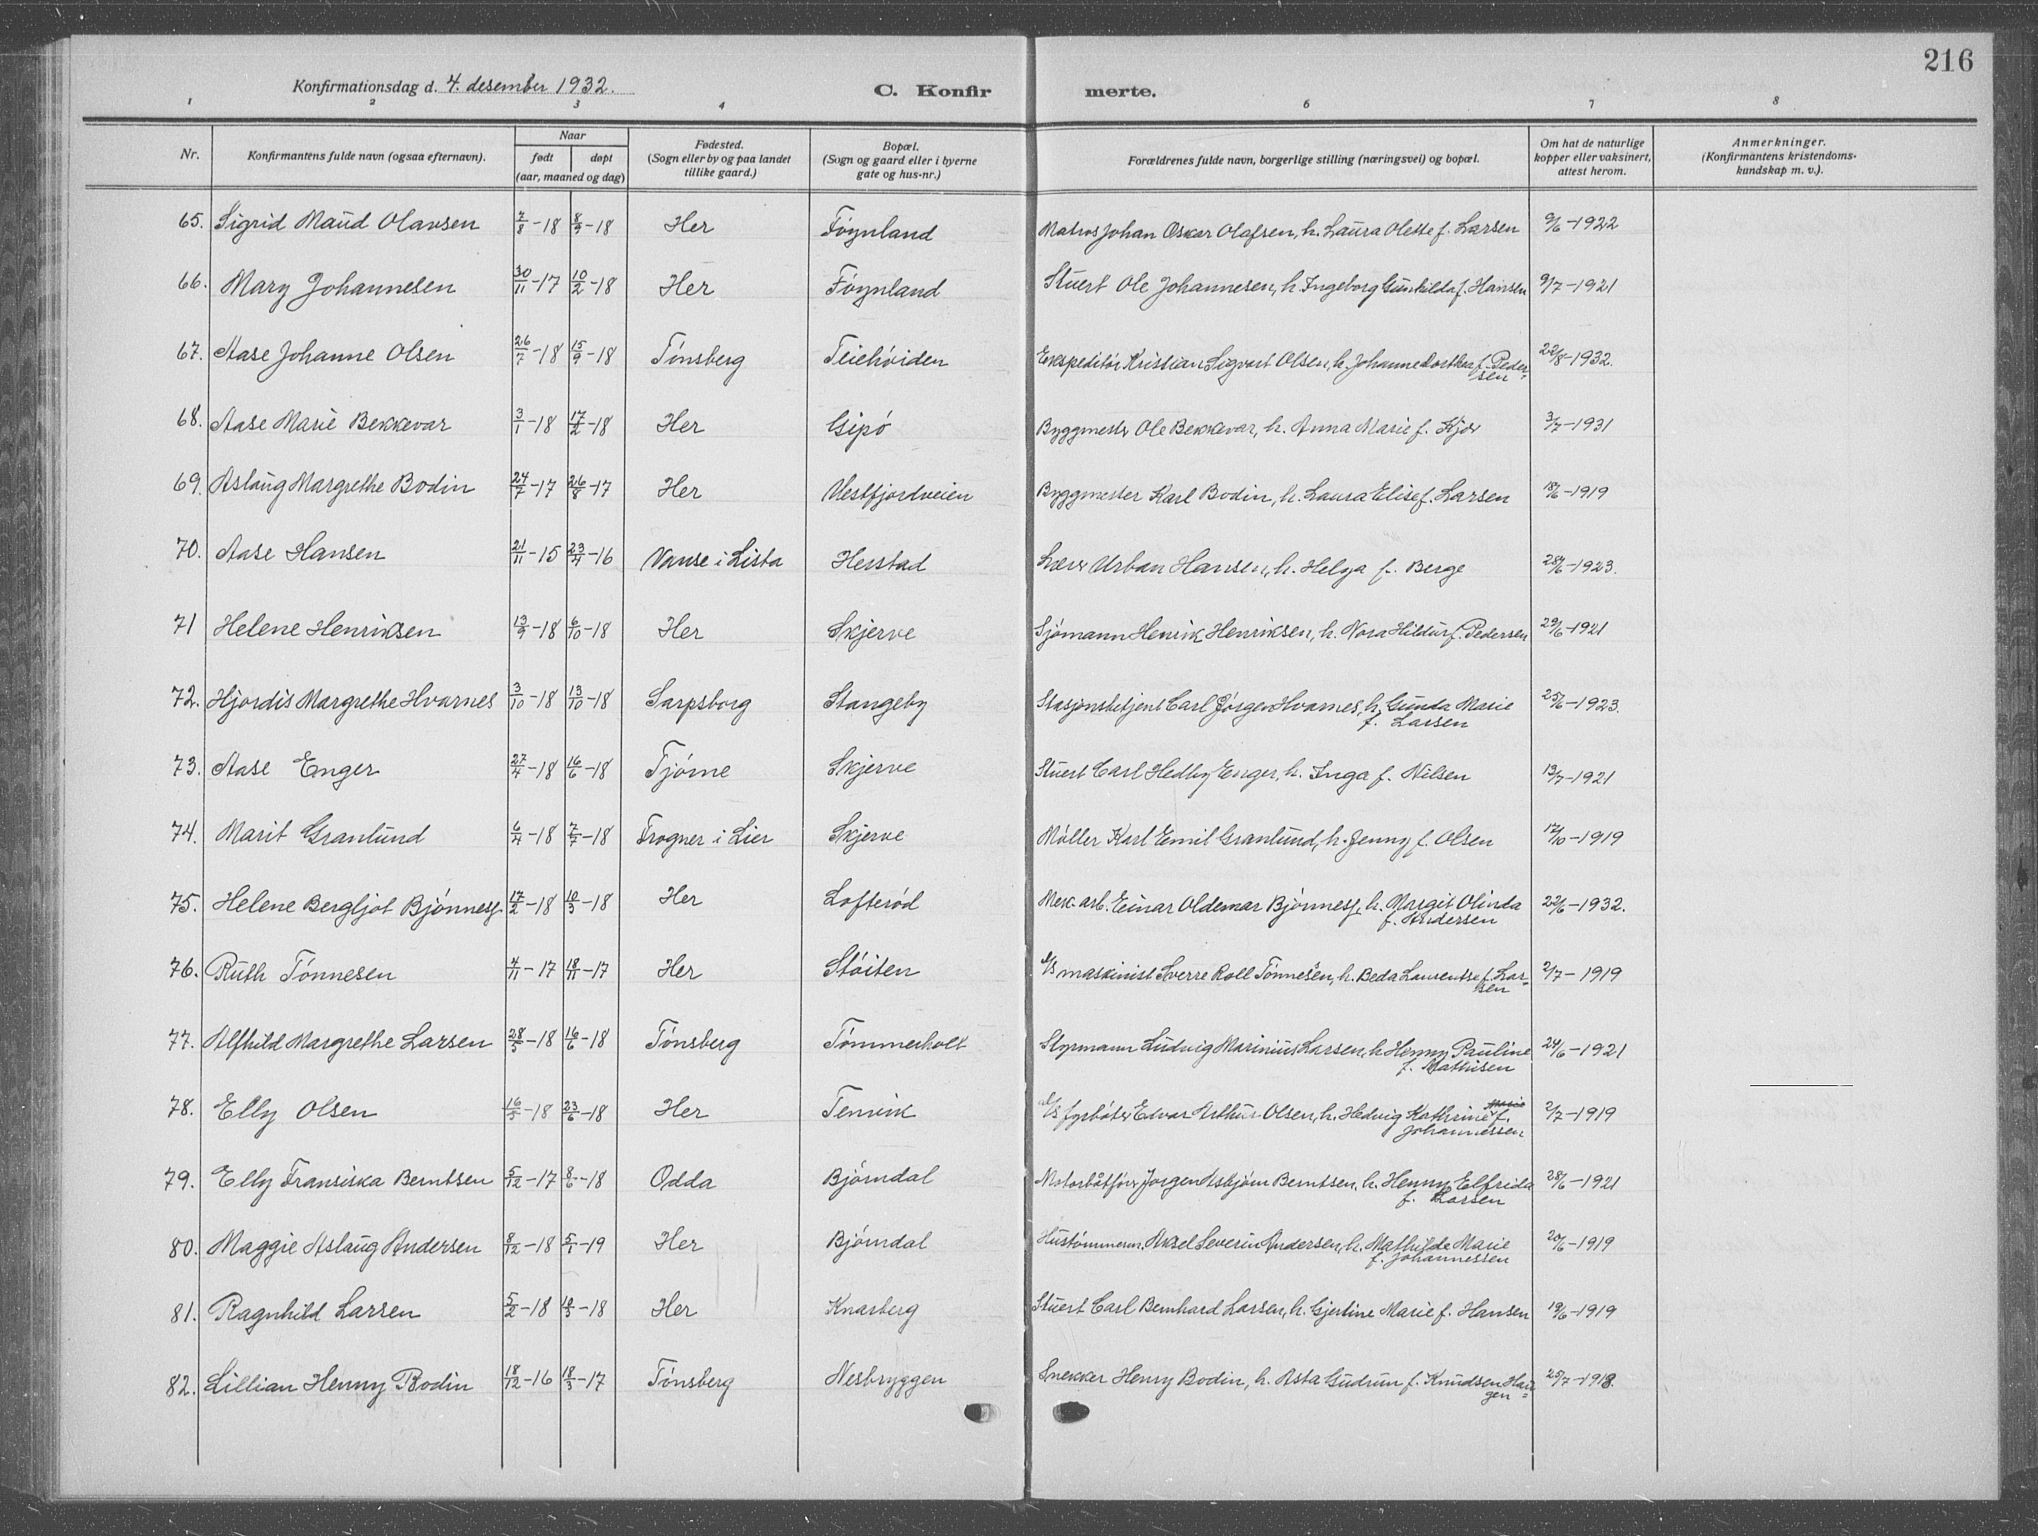 216
Konfirmationsdag d. 4. desember 1932. C. Konfirmerte.
1 2 3 4 6 7 8
Nr. Konfirmantens fulde navn (ogsaa efternavn). Naar født døpt (aar, maaned og dag) Fødested. (Sogn eller by og paa landet tillike gaard.) Bopæl. (Sogn og gaard eller i byerne gate og hus-nr.) Forældrenes fulde navn, borgerlige stilling (næringsvei) og bopæl. Om hat de naturlige kopper eller vaksinert, attest herom. Anmerkninger. (Konfirmantens kristendoms-kundskap m. v.).
65. Sigrid Maud Olavsen 7/8-18 8/9-18 Her Føynland Matros Johan Oskar Olafsen, h. Laura Olette f. Larsen 9/6-1922
66. Mary Johannesen 30/11-17 10/2-18 Her Føynland Stuert Ole Johannesen, h. Ingeborg Gunhilda f. Hansen 9/7-1921
67. Aase Johanne Olsen 26/7-18 15/9-18 Tønsberg Teiehøiden Ekspeditør Kristian Sigvart Olsen, h. Johanne Dorthea f. Peder-
sen 22/8-1932.
68. Aase Marie Bekkevar 3/1-18 17/2-18 Her Gipø Byggmester Ole Bekkevar, h. Anna Marie f. Kjær 3/7-1931
69. Aslaug Margrethe Bodin 24/7-17 26/8-17 Her Vestfjordveien Byggmester Karl Bodin, h. Laura Elise f. Larsen 18/6-1919
70. Aase Hansen 21/11-15 23/4-16 Vanse i Lista Herstad Lærer Urban Hansen, h. Helga f. Berge 28/6-1923.
71 Helene Henriksen 13/9-18 6/10-18 Her Skjerve Sjømann Henrik Henriksen, h. Nora Hildur f. Pedersen 29/6-1921
72. Hjørdis Margrethe Hvarnes 3/10-18 13/10-18 Sarpsborg Stangeby Stasjonsbetjent Carl Jørgen Hvarnes, h. Gunda Marie
f. Larsen 25/6-1923.
73. Aase Enger 27/4-18 16/6-18 Tjøme Skjerve Stuert Carl Hedby Enger, h. Inga f. Nilsen 13/7-1921
74. Marit Granlund 6/4-18 7/7-18 Frogner i Lier Skjerve Møller Karl Emil Granlund, h. Jenny f. Olsen 17/10-1919
75. Helene Bergljot Bjønnes 17/2-18 10/3-18 Her Lofterød Mek. arb. Einar Oldemar Bjønnes, h. Margit Olinda
f. Andersen 22/6-1932.
76. Ruth Tønnesen 4/11-17 18/11-17 Her Støiten maskinist Sverre Roll Tønnesen, h. Beda Laurentse f. Lar-
sen 2/7-1919
77. Alfhild Margrethe Larsen 28/5-18 16/6-18 Tønsberg Tømmerholt Styrmann Ludvig Marinius Larsen, h. Henny Pauline
f. Mathisen 24/6-1921
78. Elly Olsen 16/5-18 23/6-18 Her Tenvik fyrbøter Edvar Arthur Olsen, h. Hedvig Kathrine f.
Johannessen 2/7-1919
79. Elly Fransiska Berntsen 5/12-17 8/6-18 Odda Bjørndal Motorbåtfører Jørgen Asbjørn Berntsen, h. Henny Elfrida
f. Larsen 28/6-1921
80. Maggie Aslaug Andersen 8/12-18 5/1-19 Her Bjørndal Hustømmerm. Aksel Severin Andersen, h. Mathilde Marie
f. Johannessen 20/6-1919
81. Ragnhild Larsen 5/2-18 10/3-18 Her Knarberg Stuert Carl Bernhard Larsen, h. Gjertine Marie f. Hansen 19/6-1919
82. Lillian Henny Bodin 18/12-16 18/3-17 Tønsberg Nesbryggen Snekker Henry Bodin, h. Asta Gudrun f. Knudsen Hau-
gen 25/7-1918.